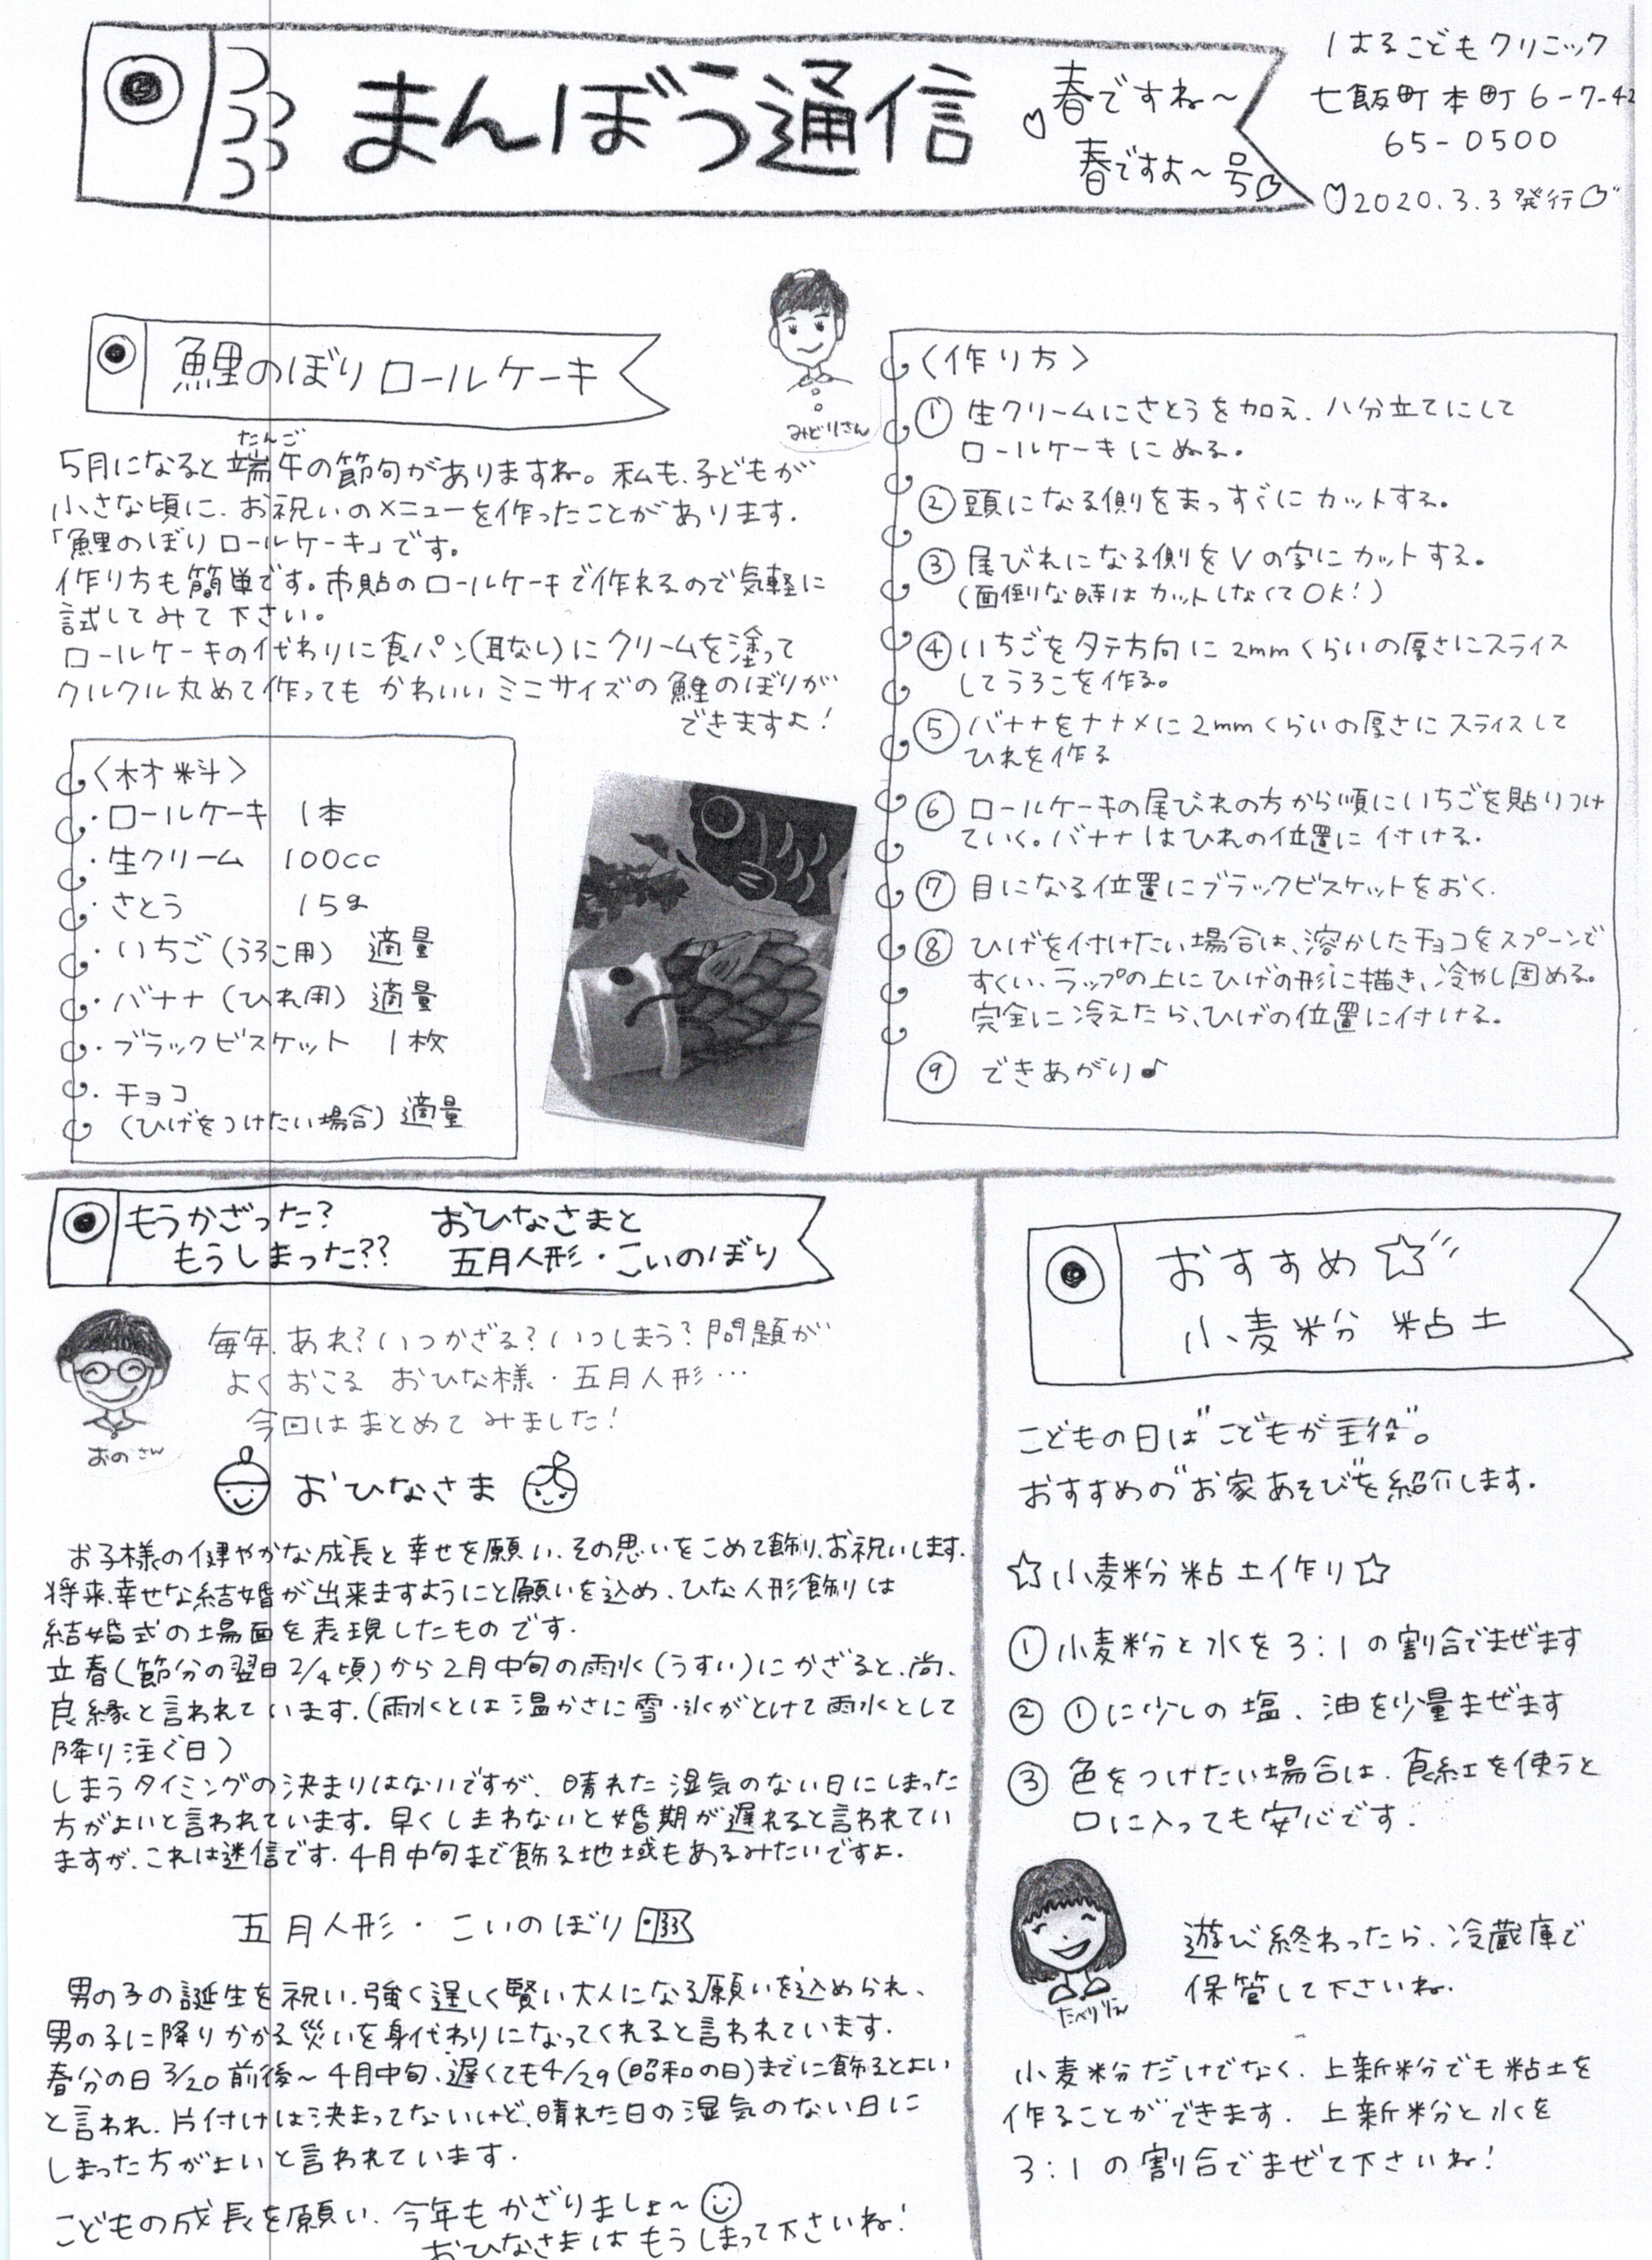 まんぼう通信
春ですね～
春ですよ～号
はるこどもクリニック
七飯町本町6-7-42
65-0500
2020.3.3発行
鯉のぼりロールケーキ
みどりさん
たんご
5月になると端午の節句がありますね。私も、子どもが
小さな頃に、お祝いのメニューを作ったことがあります.
「鯉のぼりロールケーキ」です。
作り方も簡単です。市販のロールケーキで作れるので気軽に
試してみて下さい。
ロールケーキの代わりに食パン(耳なし)にクリームを塗って
クルクル丸めて作っても かわいいミニサイズの鯉のぼりが
できますよ!
〈材料〉
・ロールケーキ 1本
・生クリーム 100cc
・さとう 15g
・いちご(うろこ用) 適量
・バナナ(ひれ用) 適量
・ブラックビスケット 1枚
・チョコ
(ひげをつけたい場合) 適量
〈作り方〉
① 生クリームにさとうを加え、八分立てにして
ロールケーキにぬる。
② 頭になる側をまっすぐにカットする。
③ 尾びれになる側をVの字にカットする。
(面倒な時はカットしなくてOK!)
④ いちごをタテ方向に2mmくらいの厚さにスライス
してうろこを作る。
⑤ バナナをナナメに2mmくらいの厚さにスライスして
ひれを作る
⑥ ロールケーキの尾びれの方から順にいちごを貼りつけ
ていく。バナナはひれの位置に付ける.
⑦ 目になる位置にブラックビスケットをおく.
⑧ ひげを付けたい場合は、溶かしたチョコをスプーンで
すくい、ラップの上にひげの形に描き、冷やし固める。
完全に冷えたら、ひげの位置に付ける。
⑨ できあがり♪
もうかざった?
もうしまった??
おひなさまと
五月人形・こいのぼり
おのさん
毎年、あれ?いつかざる?いつしまう?問題が
よくおこる おひな様・五月人形…
今回はまとめてみました!
おひなさま
お子様の健やかな成長と幸せを願い、その思いをこめて飾り、お祝いします.
将来、幸せな結婚が出来ますようにと願いを込め、ひな人形飾りは
結婚式の場面を表現したものです.
立春(節分の翌日2/4頃)から2月中旬の雨水(うすい)にかざると、尚、
良縁と言われています.(雨水とは温かさに雪・氷がとけて雨水として
降り注ぐ日)
しまうタイミングの決まりはないですが、晴れた湿気のない日にしまった
方がよいと言われています。早くしまわないと婚期が遅れると言われてい
ますが、これは迷信です.4月中旬まで飾る地域もあるみたいですよ.
五月人形・こいのぼり
男の子の誕生を祝い、強く逞しく賢い大人になる願いを込められ、
男の子に降りかかる災いを身代わりになってくれると言われています.
春分の日3/20前後～4月中旬、遅くても4/29(昭和の日)までに飾るとよい
と言われ、片付けは決まってないけど、晴れた日の湿気のない日に
しまった方がよいと言われています.
こどもの成長を願い、今年もかざりましょ～
おひなさまはもうしまって下さいね!
おすすめ☆
小麦粉粘土
こどもの日は"こどもが主役"。
おすすめの"お家あそび"を紹介します.
☆小麦粉粘土作り☆
① 小麦粉と水を3:1の割合でまぜます
② ①に少しの塩、油を少量まぜます
③ 色をつけたい場合は、食紅を使うと
口に入っても安心です.
たべりえ
遊び終わったら、冷蔵庫で
保管して下さいね.
小麦粉だけでなく、上新粉でも粘土を
作ることができます. 上新粉と水を
3:1の割合でまぜて下さいね!